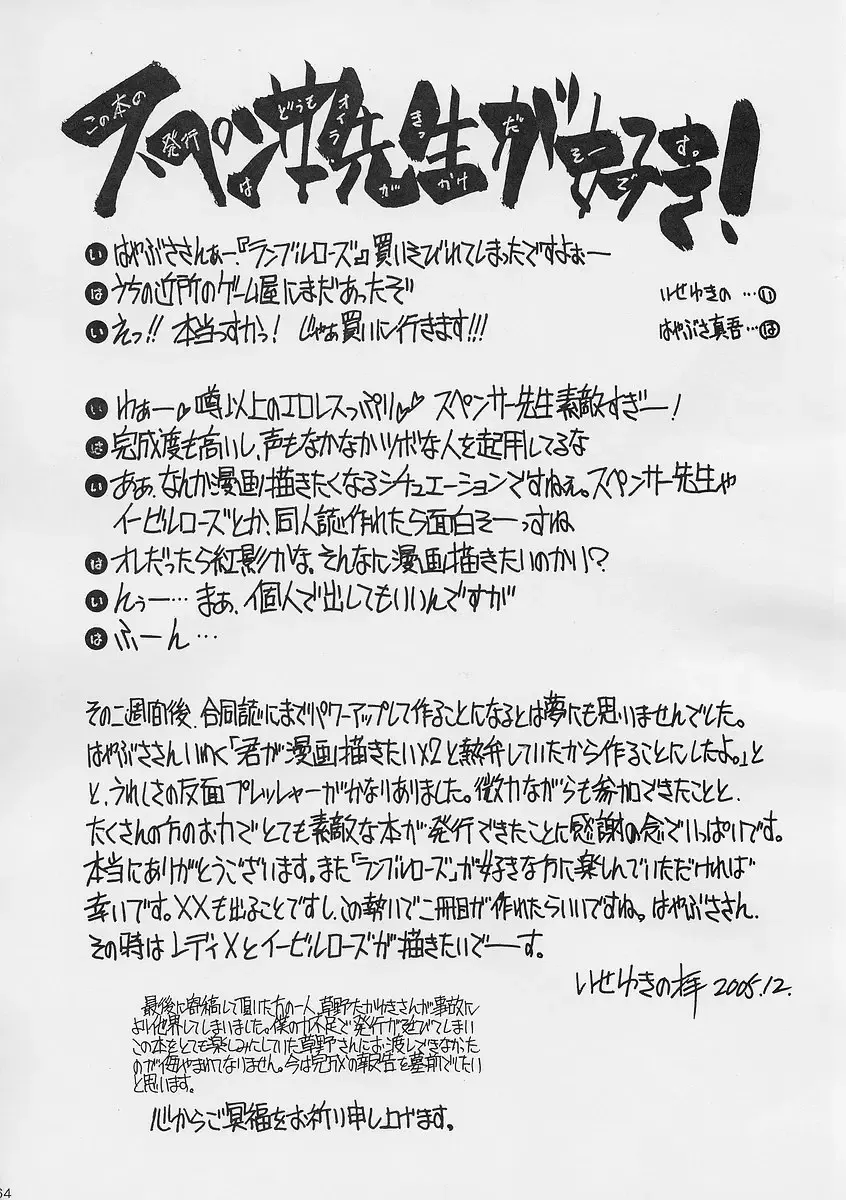 スペンサー先生が好き!
この本の発行はどうもオイラがきっかけだそーです。
い はやぶささんぁー、『ランブルローズ』買いそびれてしまったですよぉー
は うちの近所のゲーム屋にまだあったぞ
い えっ!! 本当っすかっ! じゃぁ買いに行きます!!!
いせゆきの …い
はやぶさ真吾…は
い わぁー♡噂以上のエロレスっぷり♡♡ スペンサー先生素敵すぎー!
は 完成度も高いし、声もなかなかツボな人を起用してるな
い あぁ、なんか漫画描きたくなるシチュエーションですねぇ。スペンサー先生や
イービルローズとか、同人誌作れたら面白そーっすね
は オレだったら紅影かな。そんなに漫画描きたいのかい?
い んぅー… まぁ、個人で出してもいいんですが
は ふーん…
その二週間後、合同誌にまでパワーアップして作ることになるとは夢にも思いませんでした。
はやぶささんいわく「君が漫画描きたいx2と熱弁していたから作ることにしたよ。」と
と、うれしさの反面プレッシャーがかなりありました。微力ながらも参加できたことと、
たくさんの方のお力でとても素敵な本が発行できたことに感謝の念でいっぱいです。
本当にありがとうございます。また「ランブルローズ」が好きな方に楽しんでいただければ
幸いです。XXも出ることですし、この勢いで二冊目が作れたらいいですね。はやぶささん、
その時はレディXとイービルローズが描きたいでーす。
いせゆきの拝 2005.12.
最後に寄稿して頂いた方の一人、草野たかゆきさんが事故に
より他界してしまいました。僕の力不足で発行が延びてしまい
この本をとても楽しみにしていた草野さんにお渡しできなかった
のが悔やまれてなりません。今は完成の報告を墓前でしたい
と思います。
心からご冥福をお祈り申し上げます。
64